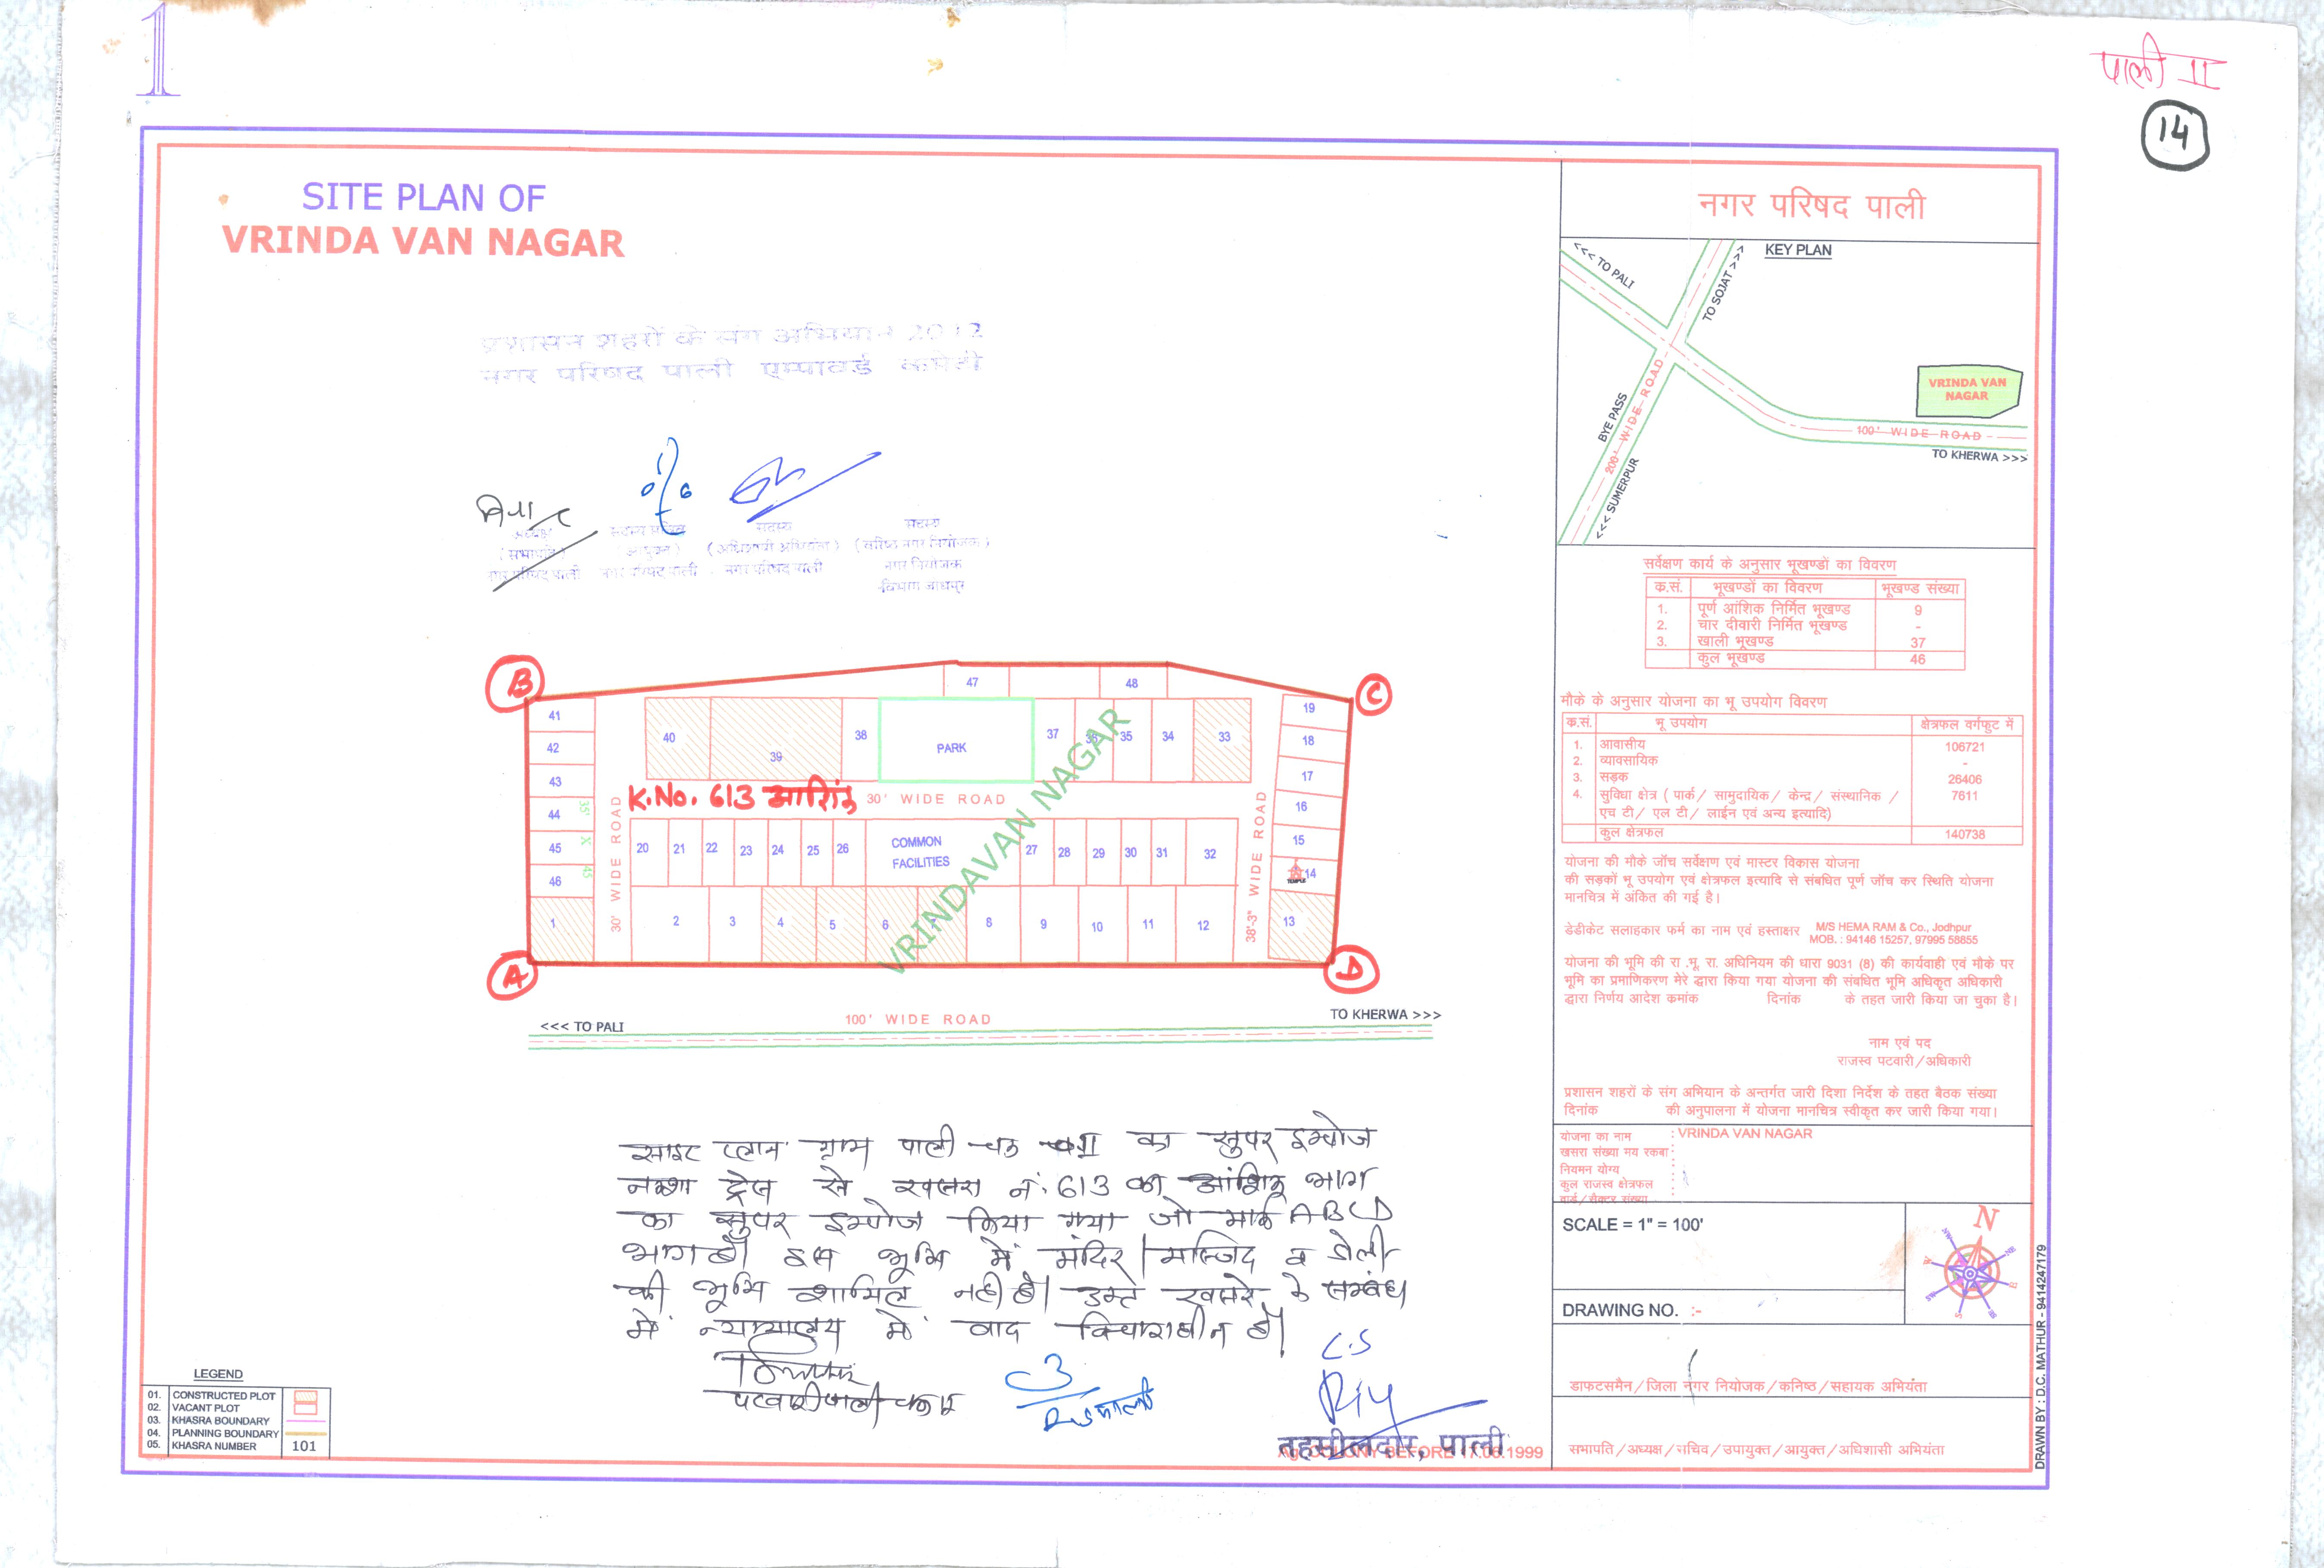 1
पाली II
14
SITE PLAN OF
VRINDA VAN NAGAR
प्रशासन शहरों के संग अभियान 2012
नगर परिषद पाली एम्पावर्ड कमेटी
अध्यक्ष
(सभापति)
नगर परिषद पाली
सदस्य सचिव
(आयुक्त)
नगर परिषद पाली
सदस्य
(अधिशाषी अभियंता)
नगर परिषद पाली
सदस्य
(वरिष्ठ नगर नियोजक)
नगर नियोजक
विभाग जोधपुर
B
C
47
48
41
42
43
44
45
46
1
35' X 45'
40
39
38
PARK
37
36
35
34
33
19
18
17
16
15
14
TEMPLE
13
K.No. 613 आशिंक
30' WIDE ROAD
30' WIDE ROAD
38'-3" WIDE ROAD
20
21
22
23
24
25
26
COMMON
FACILITIES
27
28
29
30
31
32
2
3
4
5
6
7
8
9
10
11
12
VRINDAVAN NAGAR
A
D
<<< TO PALI
100' WIDE ROAD
TO KHERWA >>>
साइट प्लान ग्राम पाली चक का सुपर इम्पोज
नक्शा ट्रेस से खसरा नं. 613 का आंशिक भाग
का सुपर इम्पोज किया गया जो मार्क ABCD
भाग है। इस भूमि में मंदिर/मस्जिद व डोली
की भूमि शामिल नही है। उक्त खसरे के सम्बंध
में न्यायालय में वाद विचाराधीन है।
C.S
तहसीलदार, पाली
BEFORE 17.06.1999
LEGEND
01. CONSTRUCTED PLOT
02. VACANT PLOT
03. KHASRA BOUNDARY
04. PLANNING BOUNDARY
05. KHASRA NUMBER 101
नगर परिषद पाली
KEY PLAN
<<< TO PALI
TO SOJAT >>>
BYE PASS
200' WIDE ROAD
<<< SUMERPUR
VRINDA VAN
NAGAR
100' WIDE ROAD
TO KHERWA >>>
सर्वेक्षण कार्य के अनुसार भूखण्डों का विवरण
क.सं. भूखण्डों का विवरण भूखण्ड संख्या
1. पूर्ण आंशिक निर्मित भूखण्ड 9
2. चार दीवारी निर्मित भूखण्ड -
3. खाली भूखण्ड 37
कुल भूखण्ड 46
मौके के अनुसार योजना का भू उपयोग विवरण
क.सं. भू उपयोग क्षेत्रफल वर्गफुट में
1. आवासीय 106721
2. व्यावसायिक -
3. सड़क 26406
4. सुविधा क्षेत्र ( पार्क/ सामुदायिक/ केन्द्र/ संस्थानिक / 7611
एच टी/ एल टी/ लाईन एवं अन्य इत्यादि)
कुल क्षेत्रफल 140738
योजना की मौके जॉच सर्वेक्षण एवं मास्टर विकास योजना
की सड़कों भू उपयोग एवं क्षेत्रफल इत्यादि से संबधित पूर्ण जॉच कर स्थिति योजना
मानचित्र में अंकित की गई है।
डेडीकेट सलाहकार फर्म का नाम एवं हस्ताक्षर M/S HEMA RAM & Co., Jodhpur
MOB. : 94146 15257, 97995 58855
योजना की भूमि की रा .भू. रा. अधिनियम की धारा 9031 (8) की कार्यवाही एवं मौके पर
भूमि का प्रमाणिकरण मेरे द्वारा किया गया योजना की संबधित भूमि अधिकृत अधिकारी
द्वारा निर्णय आदेश कमांक दिनांक के तहत जारी किया जा चुका है।
नाम एवं पद
राजस्व पटवारी/अधिकारी
प्रशासन शहरों के संग अभियान के अन्तर्गत जारी दिशा निर्देश के तहत बैठक संख्या
दिनांक की अनुपालना में योजना मानचित्र स्वीकृत कर जारी किया गया।
योजना का नाम : VRINDA VAN NAGAR
खसरा संख्या मय रकबा :
नियमन योग्य :
कुल राजस्व क्षेत्रफल :
वार्ड/सैक्टर संख्या :
SCALE = 1" = 100'
N
DRAWING NO. :-
डाफटसमैन/जिला नगर नियोजक/कनिष्ठ/सहायक अभियंता
सभापति/अध्यक्ष/सचिव/उपायुक्त/आयुक्त/अधिशासी अभियंता
DRAWN BY : D.C. MATHUR - 9414247179